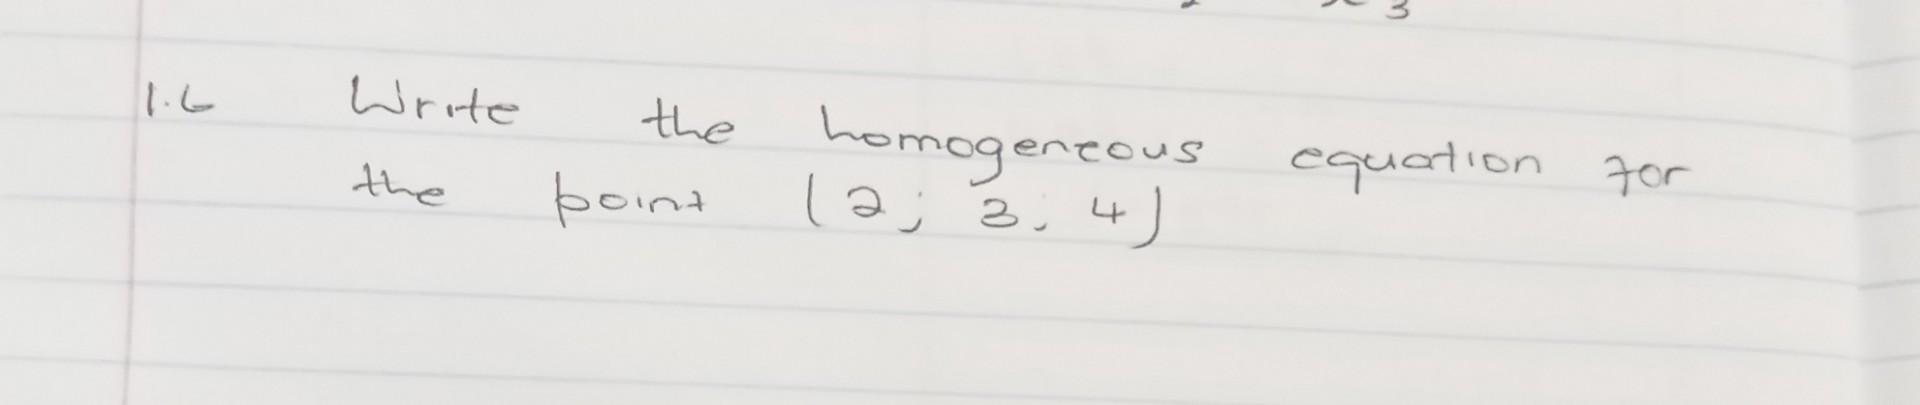 3
1.6 Write the homogeneous equation for
the point (2; 3; 4)